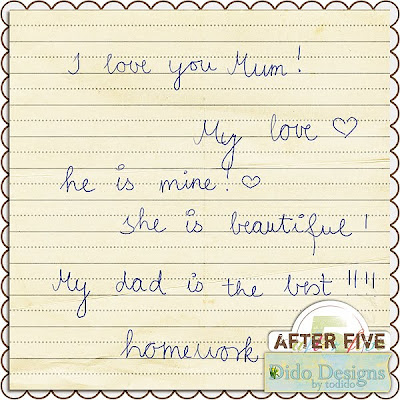 I love you Mum!
My love ♡
he is mine! ♡
She is beautiful!
My dad is the best !!!!
homework
AFTER FIVE
Dido Designs
by todido